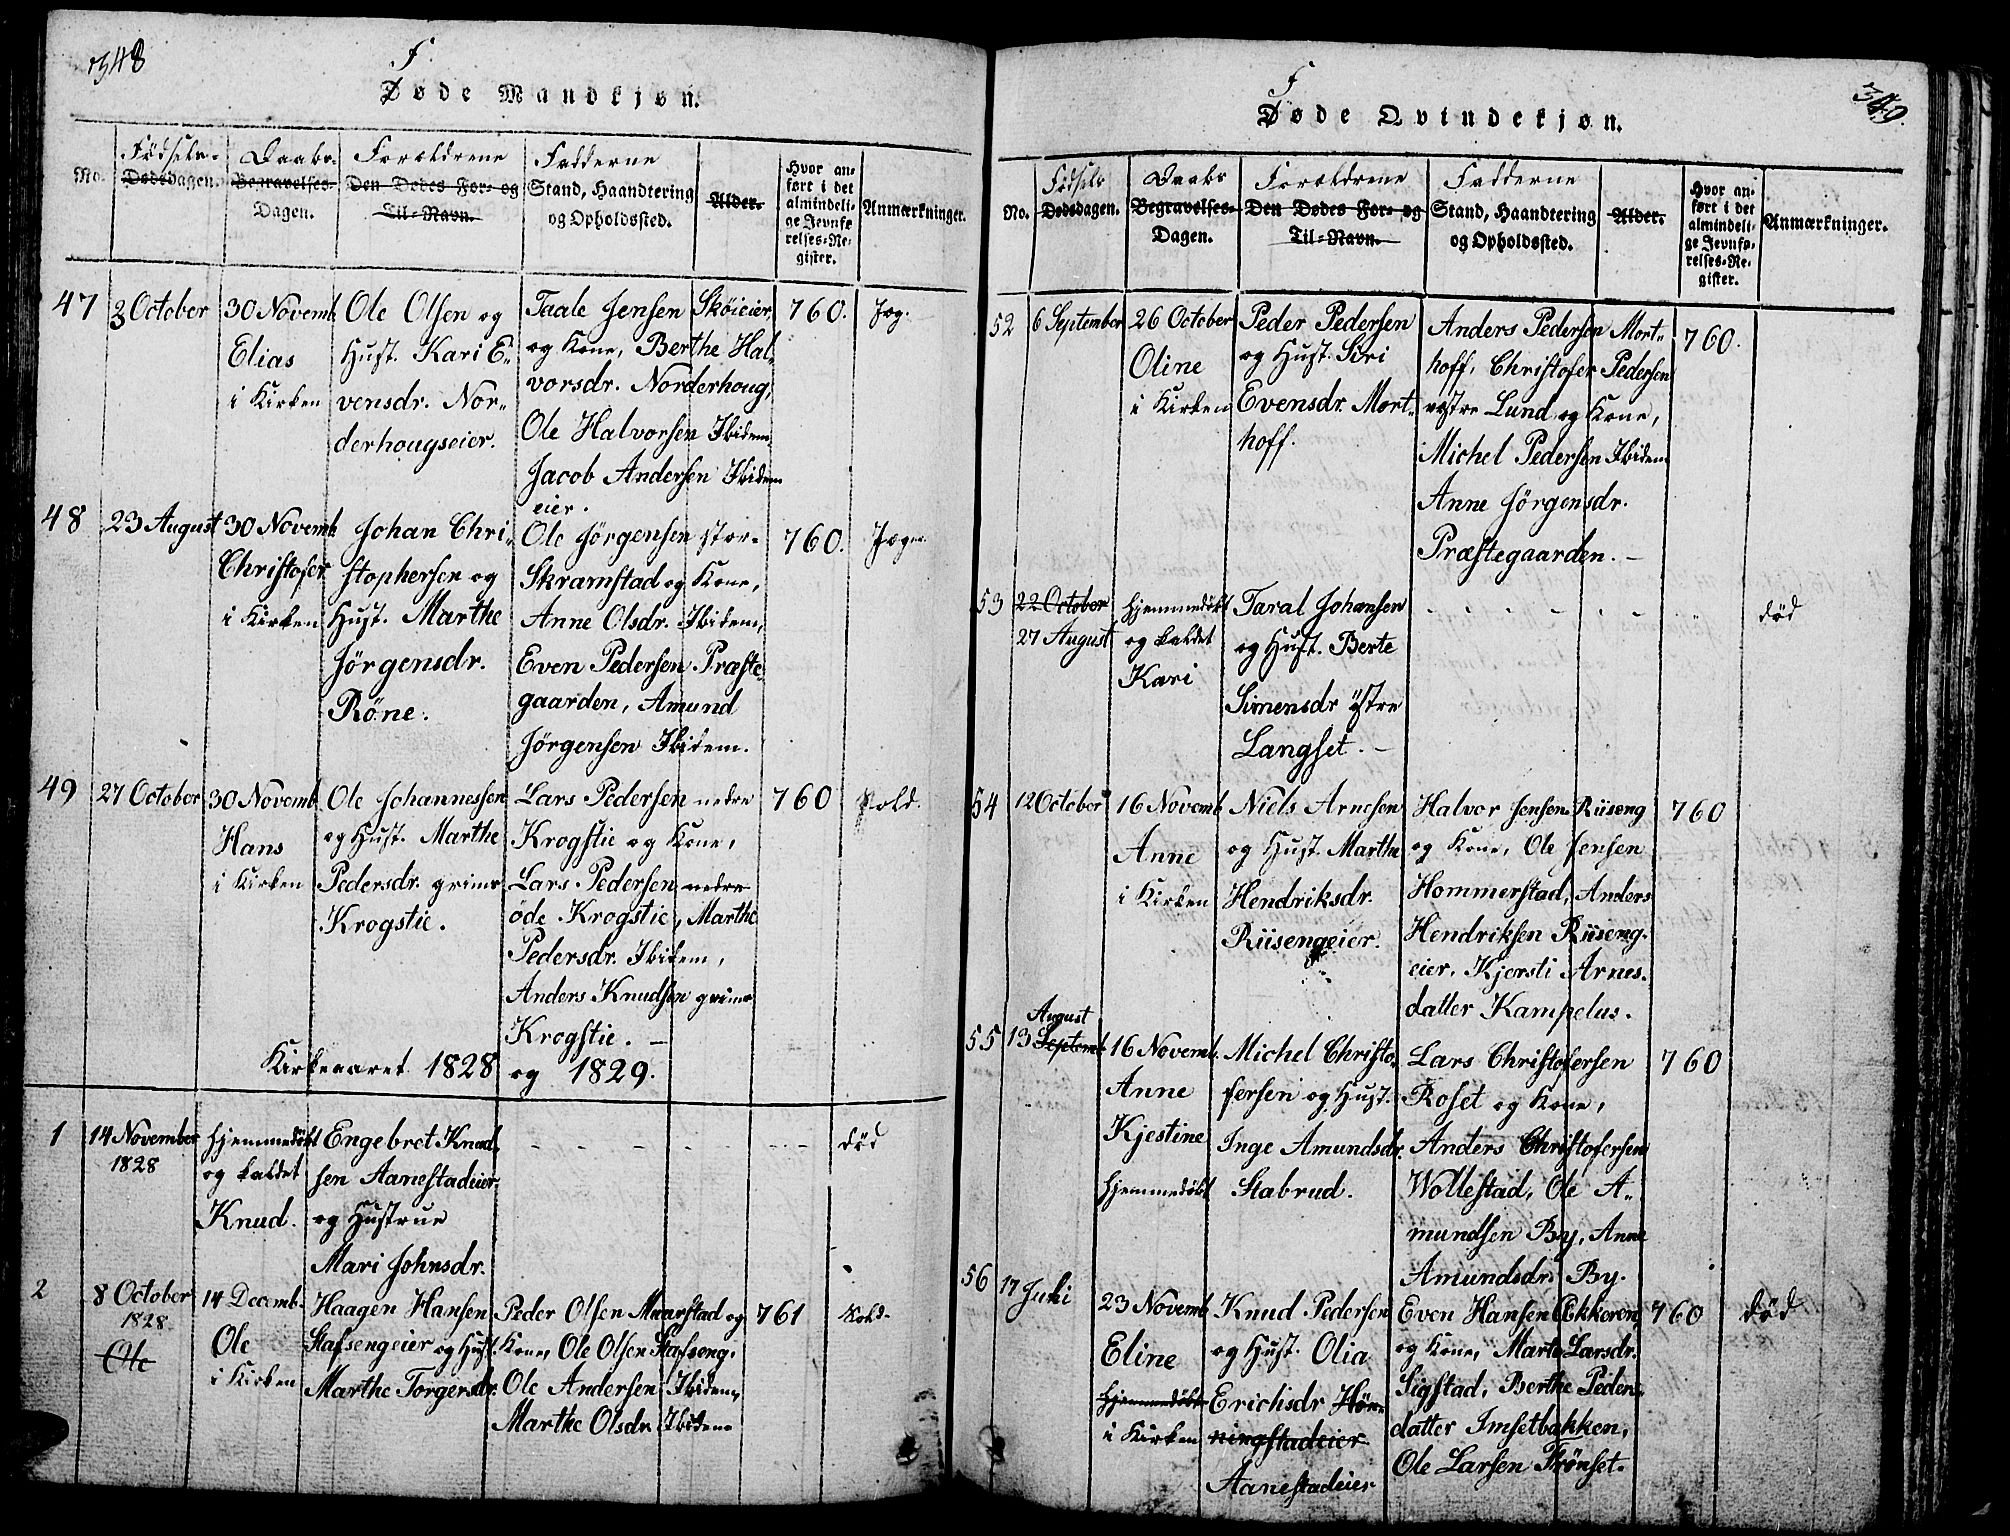 348
F
Døde Mandkjøn.
No.
Fødsels-
Dødsdagen.
Daabs-
Begravelses-
Dagen.
Forældrene
Den Dødes For- og
Til-Navn.
Fadderne
Stand, Haandtering
og Opholdssted.
Alder.
Hvor an-
ført i det
almindeli-
ge Jevnfø-
relses-Re-
gister.
Anmærkninger.
47
3 October
30 Novemb.
Elias
i Kirken
Ole Olsen og
Hust. Kari E-
vensdr. Nor-
derhougseier.
Taale Jensen Skøieier,
og Kone, Berthe Hal-
vorsdr. Norderhoug,
Ole Halvorsen Ibidem
Jacob Andersen Ibidem
eier.
760.
48
23 August
30 Novemb.
Christofer
i Kirken
Johan Chri-
stophersen og
Hust. Marthe
Jørgensdr.
Røne.
Ole Jørgensen stor-
Skramstad og Kone,
Anne Olsdr. Ibidem,
Even Pedersen Præste-
gaarden, Amund
Jørgensen Ibidem.
760.
49
27 October
30 Novemb.
Hans
i Kirken
Ole Johannessen
og Hust. Marthe
Pedersdr. grims
Krogstie.
Lars Pedersen nedre
Krogstie og Kone,
Lars Pedersen nedre
øde Krogstie, Marthe
Pedersdr. Ibidem,
Anders Knudsen grims
Krogstie.
760
Kold.
Kirkeaaret 1828 og 1829.
1
14 November
1828
hjemmedøbt
og kaldet
Knud.
Engebret Knud-
sen Aanestadeier
og Hustrue
Mari Johnsdr.
død
2
8 October
1828
Ole
14 Decemb.
Ole
i Kirken
Haagen Hansen
Stafsengeier og Hust.
Marthe Torgersdr.
Peder Olsen Maarstad og
Kone, Ole Olsen Stafseng,
Ole Andersen Ibidem,
Marthe Olsdr. Ibidem
761
Kold.
349.
F
Døde Qvindekjøn.
No.
Fødsels
Dødsdagen.
Daabs
Begravelses-
Dagen.
Forældrene
Den Dødes For- og
Til-Navn.
Fadderne
Stand, Haandtering
og Opholdssted.
Alder.
Hvor an-
ført i det
almindeli-
ge Jevnfø-
relses-Re-
gister.
Anmærkninger.
52
6 September
26 October
Oline
i Kirken
Peder Pedersen
og Hust. Siri
Evensdr. Mort-
hoff.
Anders Pedersen Mort-
hoff, Christofer Pedersen
østre Lund og Kone,
Michel Pedersen Ibidem
Anne Jørgensdr.
Præstegaarden.
760.
53
22 October
27 August
hjemmedøbt
og kaldet
Kari
Taral Johansen
og Hust. Berte
Simensdr østre
Langset.
død
54
12 October
16 Novemb.
Anne
i Kirken
Niels Arnesen
og Hust. Marthe
Hendriksdr.
Riisengeier.
Halvor Jensen Riiseng
og Kone, Ole Jensen
Hommerstad, Anders
Hendriksen Riiseng-
eier, Kjersti Arnes-
datter Kampelus.
760
55
August
13 Septemb.
16 Novemb.
Anne
Kjestine
hjemmedøbt
Michel Christo-
fersen og Hust.
Inge Amundsdr.
Stabrud.
Lars Christofersen
Roset og Kone,
Anders Christofersen
Wollestad, Ole A-
mundsen By, Anne
Amundsdr. By.
760
56
17 Juni
23 Novemb.
Eline
hjemmedøbt
i Kirken
Knud Pedersen
og Hust. Olia
Erichsdr Høn-
ningstadeier
Aanestadeier
Even Hansen Bekkeren,
og Kone, Marte Larsdr.
Sigstad, Berthe Peders-
datter Imsetbakken,
Ole Larsen Frønset.
760
død